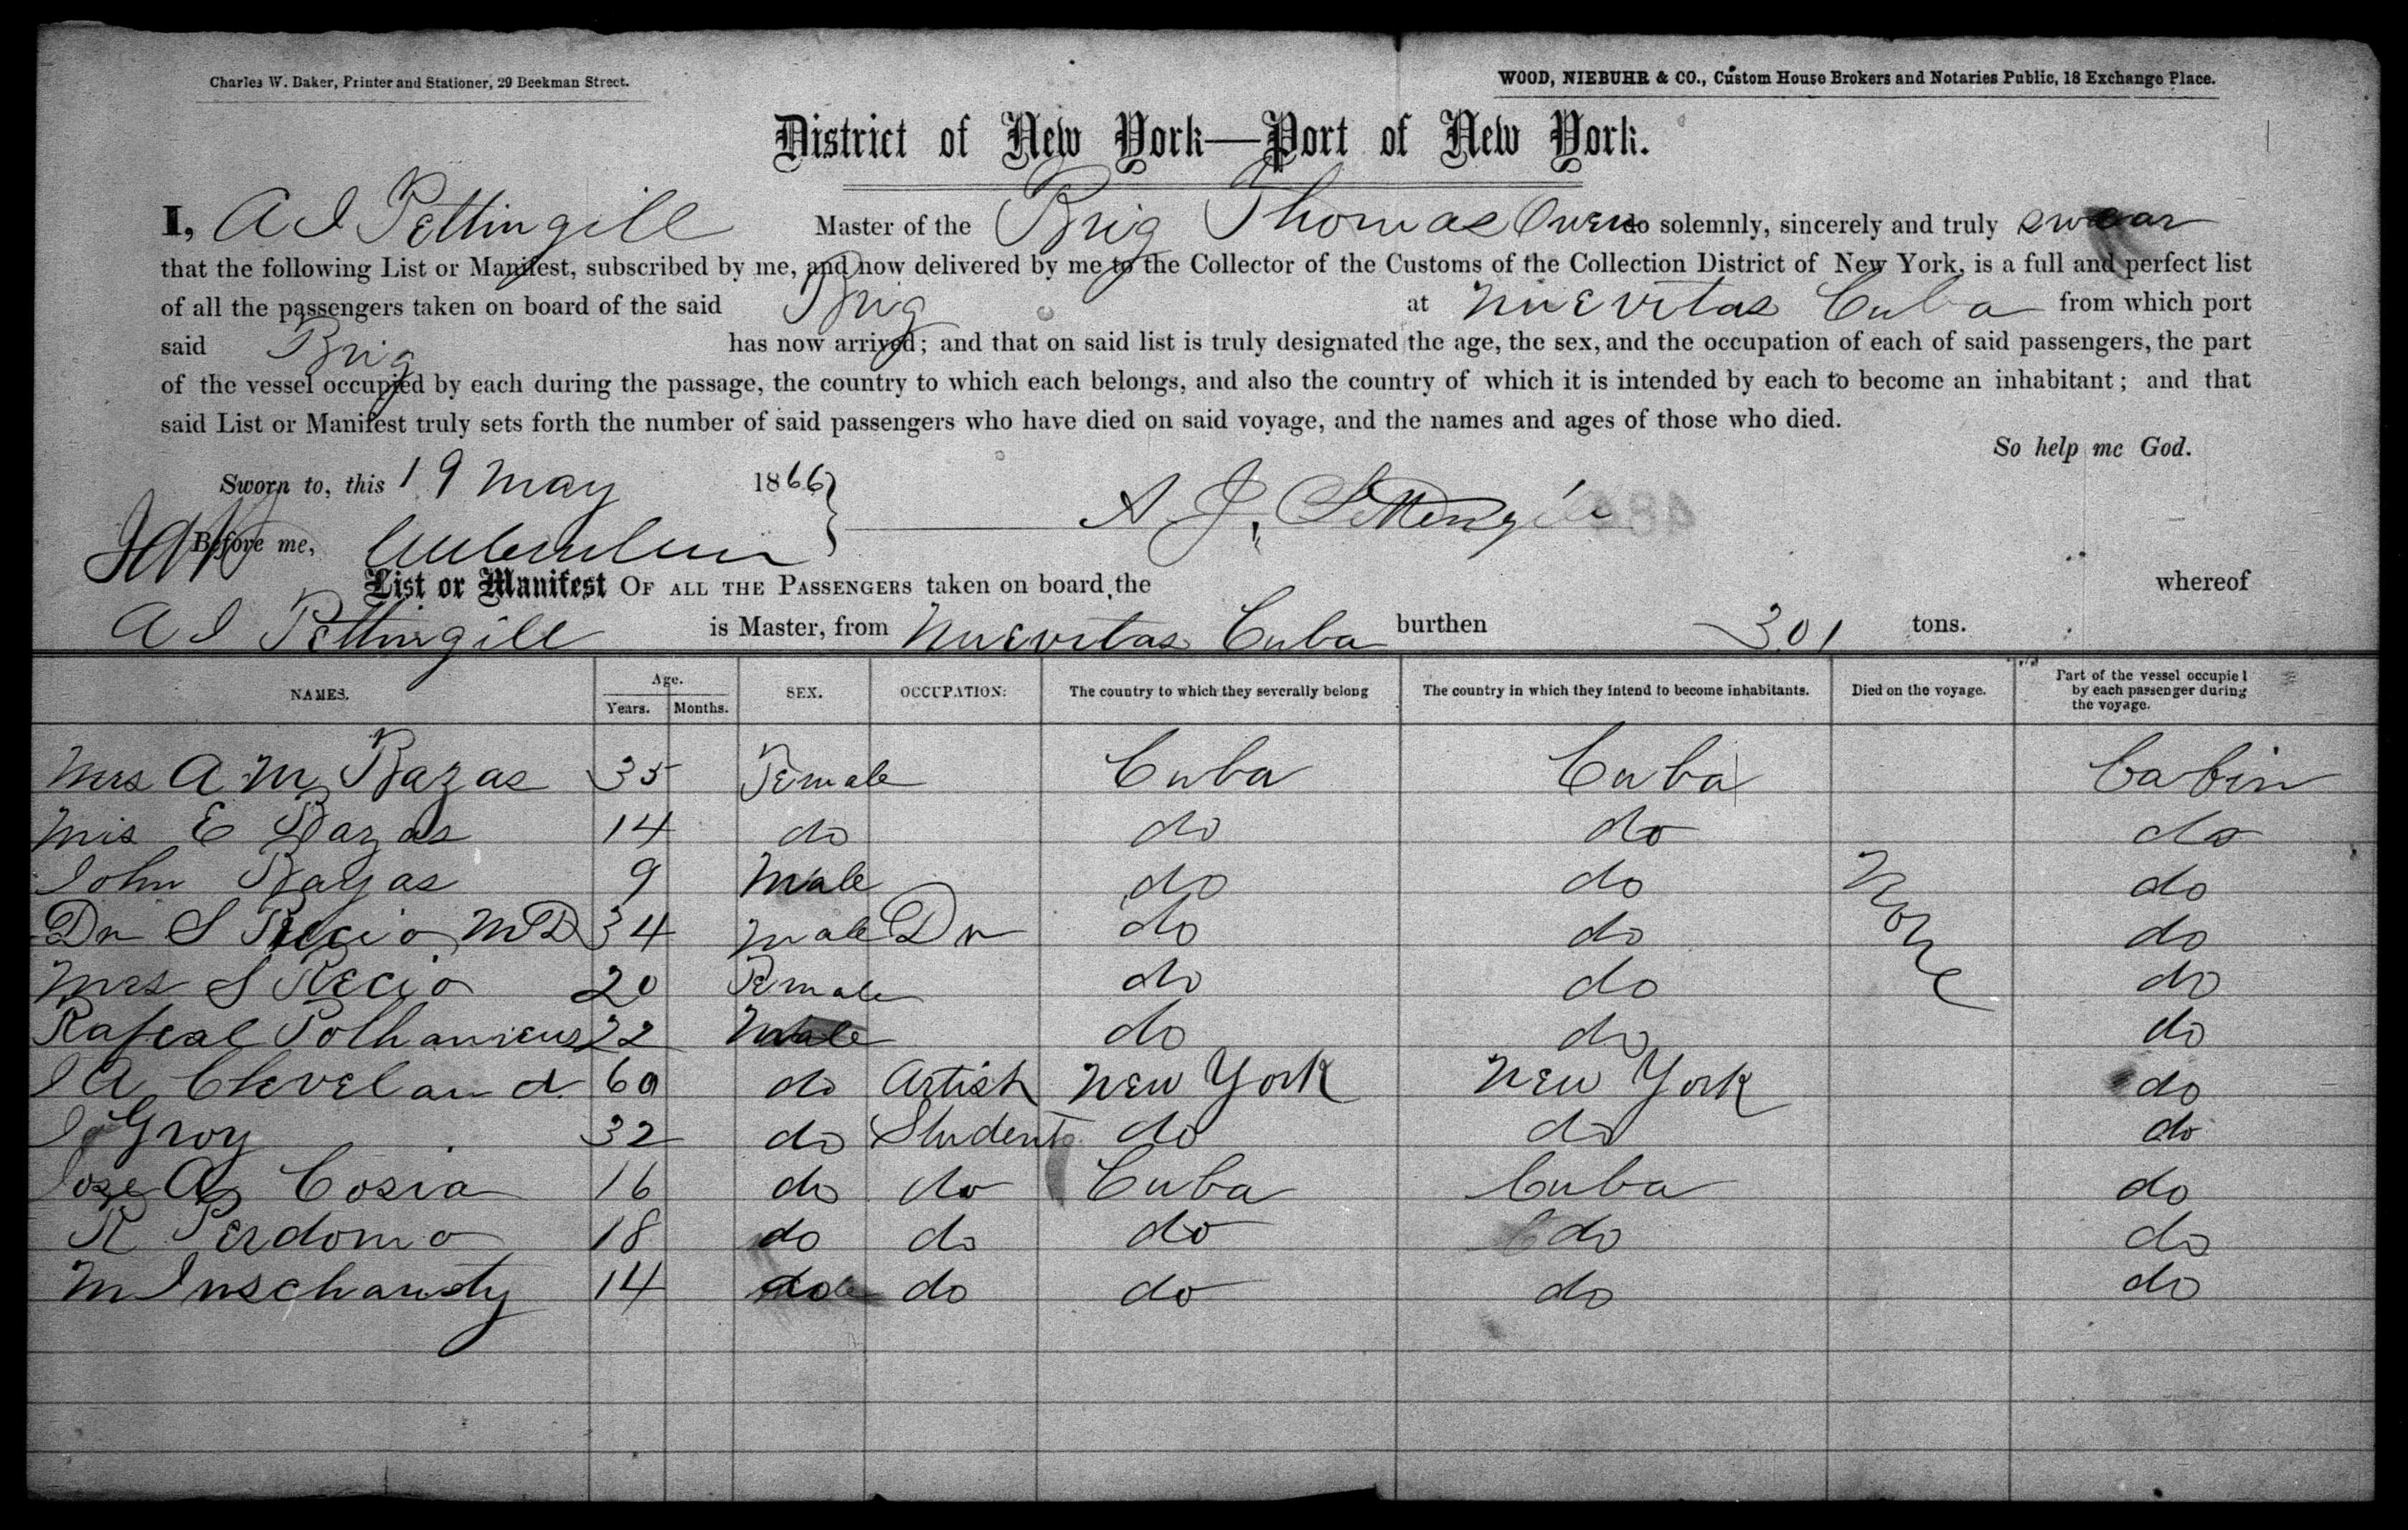 Charles W. Baker, Printer and Stationer, 29 Beekman Street.
WOOD, NIEBUHR & CO., Custom House Brokers and Notaries Public, 18 Exchange Place.
District of New York—Port of New York.
I, A J Pettingill Master of the Brig Thomas Owen do solemnly, sincerely and truly swear
that the following List or Manifest, subscribed by me, and now delivered by me to the Collector of the Customs of the Collection District of New York, is a full and perfect list
of all the passengers taken on board of the said Brig at Nuevitas Cuba from which port
said Brig has now arrived; and that on said list is truly designated the age, the sex, and the occupation of each of said passengers, the part
of the vessel occupied by each during the passage, the country to which each belongs, and also the country of which it is intended by each to become an inhabitant; and that
said List or Manifest truly sets forth the number of said passengers who have died on said voyage, and the names and ages of those who died.
So help me God.
Sworn to, this 19 May 1866
A J. Pettengill
Before me,
List or Manifest OF ALL THE PASSENGERS taken on board the whereof
A J Pettingill is Master, from Nuevitas Cuba burthen 301 tons.
NAMES. Age. Years. Months. SEX. OCCUPATION: The country to which they severally belong The country in which they intend to become inhabitants. Died on the voyage. Part of the vessel occupied by each passenger during the voyage.
Mrs A M Bazas 35 Female Cuba Cuba Cabin
Mis E Bazas 14 do do do do
John Bazas 9 Male do do None do
Dr S Recio MD 34 Male Dr do do do
Mrs S Recio 20 Female do do do
Rafeal 22 Male do do do
J A Cleveland 60 do Artist New York New York do
J Groy 32 do Student do do do
Jose A Cosia 16 do do Cuba Cuba do
R Perdomo 18 do do do do do
M 14 do do do do do